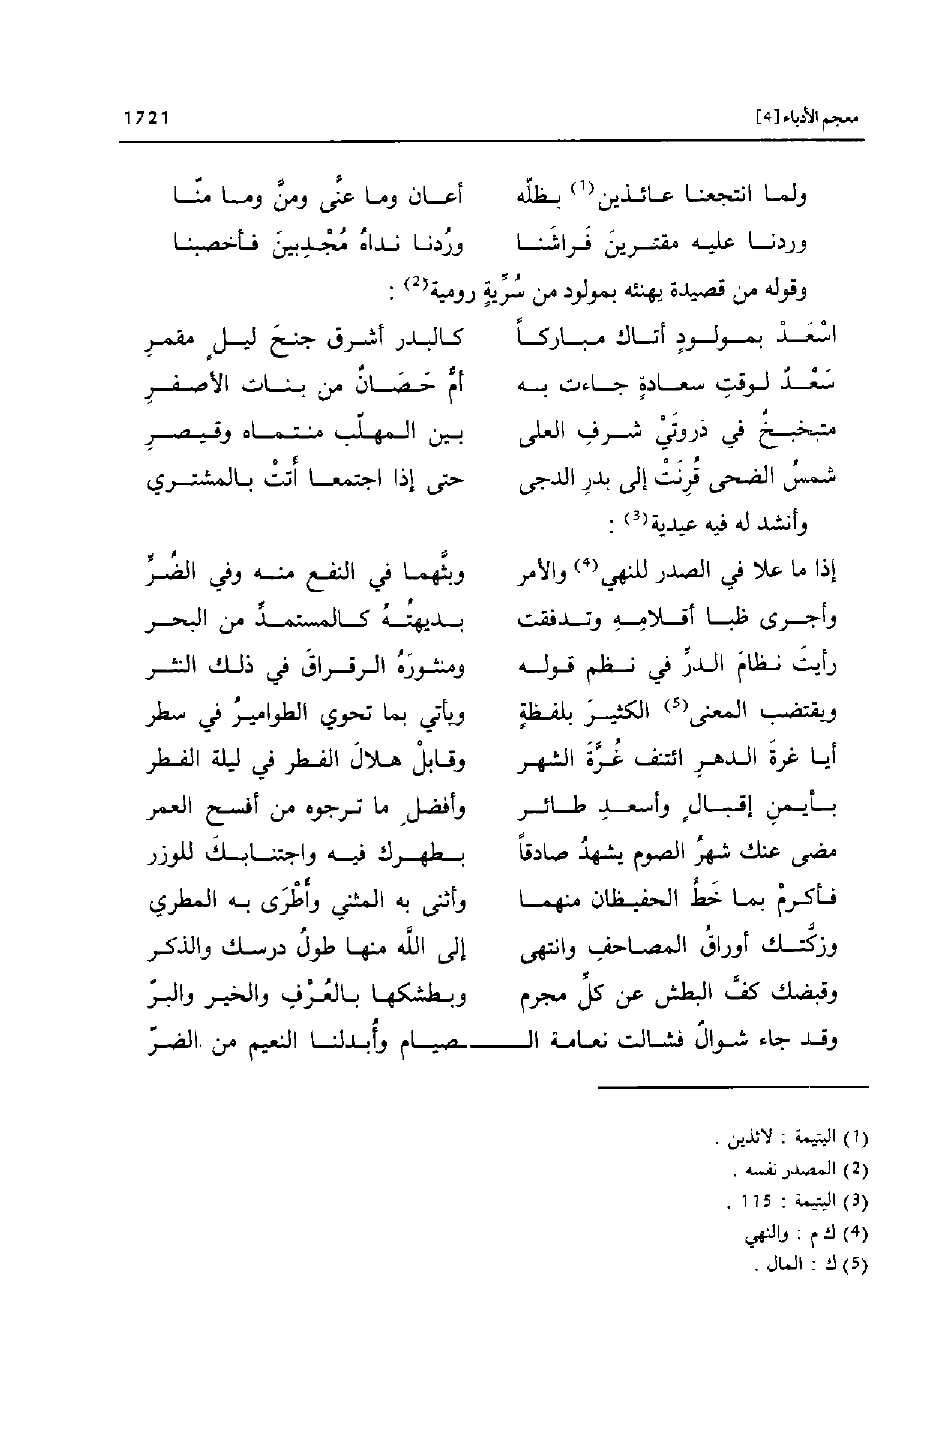 معجم الأدباء [4] 1721
ولما انتجعنا عائذين(1) بظلّه أعان وما عنّى ومنّ وما منّا
وردنا عليه مقترين فراشَنَا ورُدنا نداهُ مُجْدِبينَ فأخصبنا
وقوله من قصيدة يهنئه بمولود من سُرِّيةٍ رومية(2) :
اسْعَدْ بمولودٍ أتاك مباركاً كالبدر أشرق جنحَ ليلٍ مقمرِ
سَعْدٌ لوقتِ سعادةٍ جاءت به أمٌّ حَصَانٌ من بناتِ الأصفرِ
متبحبحٌ في ذروتَيْ شرفِ العلى بين المهلّبِ منتماه وقيصرِ
شمسُ الضحى قُرِنَتْ إلى بدرِ الدجى حتى إذا اجتمعا أتتْ بالمشتري
وأنشد له فيه عيدية(3) :
إذا ما علا في الصدر للنهي(4) والأمر وبثَّهما في النفع منه وفي الضُرِّ
وأجرى ظبا أقلامِه وتدفقت بديهتُهُ كالمستمدِّ من البحرِ
رأيتَ نظامَ الدرِّ في نظم قوله ومنثورَهُ الرقراقَ في ذلك النثرِ
ويقتضب المعنى(5) الكثيرَ بلفظةٍ ويأتي بما تحوي الطواميرُ في سطر
أيا غرةَ الدهرِ ائتنف غُرَّةَ الشهر وقابِلْ هلالَ الفطر في ليلة الفطر
بأيمن إقبالٍ وأسعد طائر وأفضلِ ما ترجوه من أفسح العمر
مضى عنك شهرُ الصوم يشهدُ صادقاً بطهرك فيه واجتنابكَ للوزر
فأكرِمْ بما خَطَّ الحفيظان منهما وأثنى به المثني وأَطْرَى به المطري
وزكَّتك أوراقُ المصاحف وانتهى إلى اللَّه منها طولُ درسك والذكر
وقبضك كفَّ البطش عن كلِّ مجرم وبطشكها بالعُرْفِ والخير والبرّ
وقد جاء شوالٌ فشالت نعامة الـ ـصيام وأُبدلنا النعيم من الضرّ
(1) اليتيمة : لائذين .
(2) المصدر نفسه .
(3) اليتيمة : 115 .
(4) ك م : والنهي
(5) ك : المال .